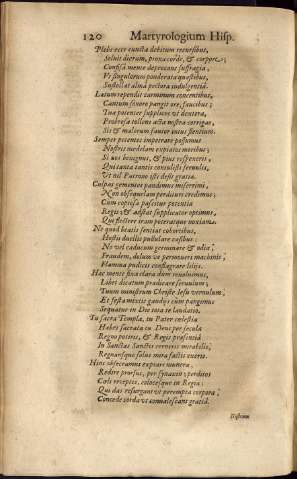 120 Martyrologium Hisp.
Plebs ecce cuncta debitum recursibus,
Soluit dicrum, prona corde, & corpore;
Confisa mente deprecans suffragia,
Vt singulorum ponderata quæstibus,
Sustollat alma pectora indulgentia.
Latum rependit carminum concentibus,
Cantum sonoro pangit ore, faucibus;
Tua potenter supplices vt dextera,
Probrosa tollens acta nostra corrigas,
Sis & malorum fautor intus plentium.
Semper petentes impetrare possumus
Nostris medelam expiatam moribus;
Si nos benignus, & pius respexeris,
Qui tanta tantis consulisti seruulis,
Vt nil Patrono iste desit gratia.
Culpas gementes pandimus miserrimi,
Non obsequelam perditus credimus;
Cum copiosa pascitur potentia
Regis; & adstat supplicator optimus,
Qui flectere iram poterat quoque maxima.
Ne quod beatis sentiat cohortibus,
Hostis duellis pustulare cusibus:
Ne vel caducum germinare & odia;
Fraudem, dolum ve promouens machinis;
Flamma pudicis conflagrare lilijs.
Hac mente fina clara dum reuoluimus,
Libet dicatum prædicare seruulum;
Tuum ministrum Christe Iesu vernulum;
Et festa mixtis gaudijs cùm pangimus
Sequatur in Deo tota te laudatio.
Tu sacra Templa, tu Pater cælestia
Habes sacrata cu Deus per sæcula
Regno potiris, & Regis præsentia
In Sanctas Sanctis cerneris mirabilis,
Regnansque solus mira factis exeris.
Hinc obsecramus expiare munera,
Redire prorsus, per synaxin perditos
Coli receptis, colatésque in Regia:
Qui das resurgant vt perempta corpora;
Concede corda vt conualescant gratia.